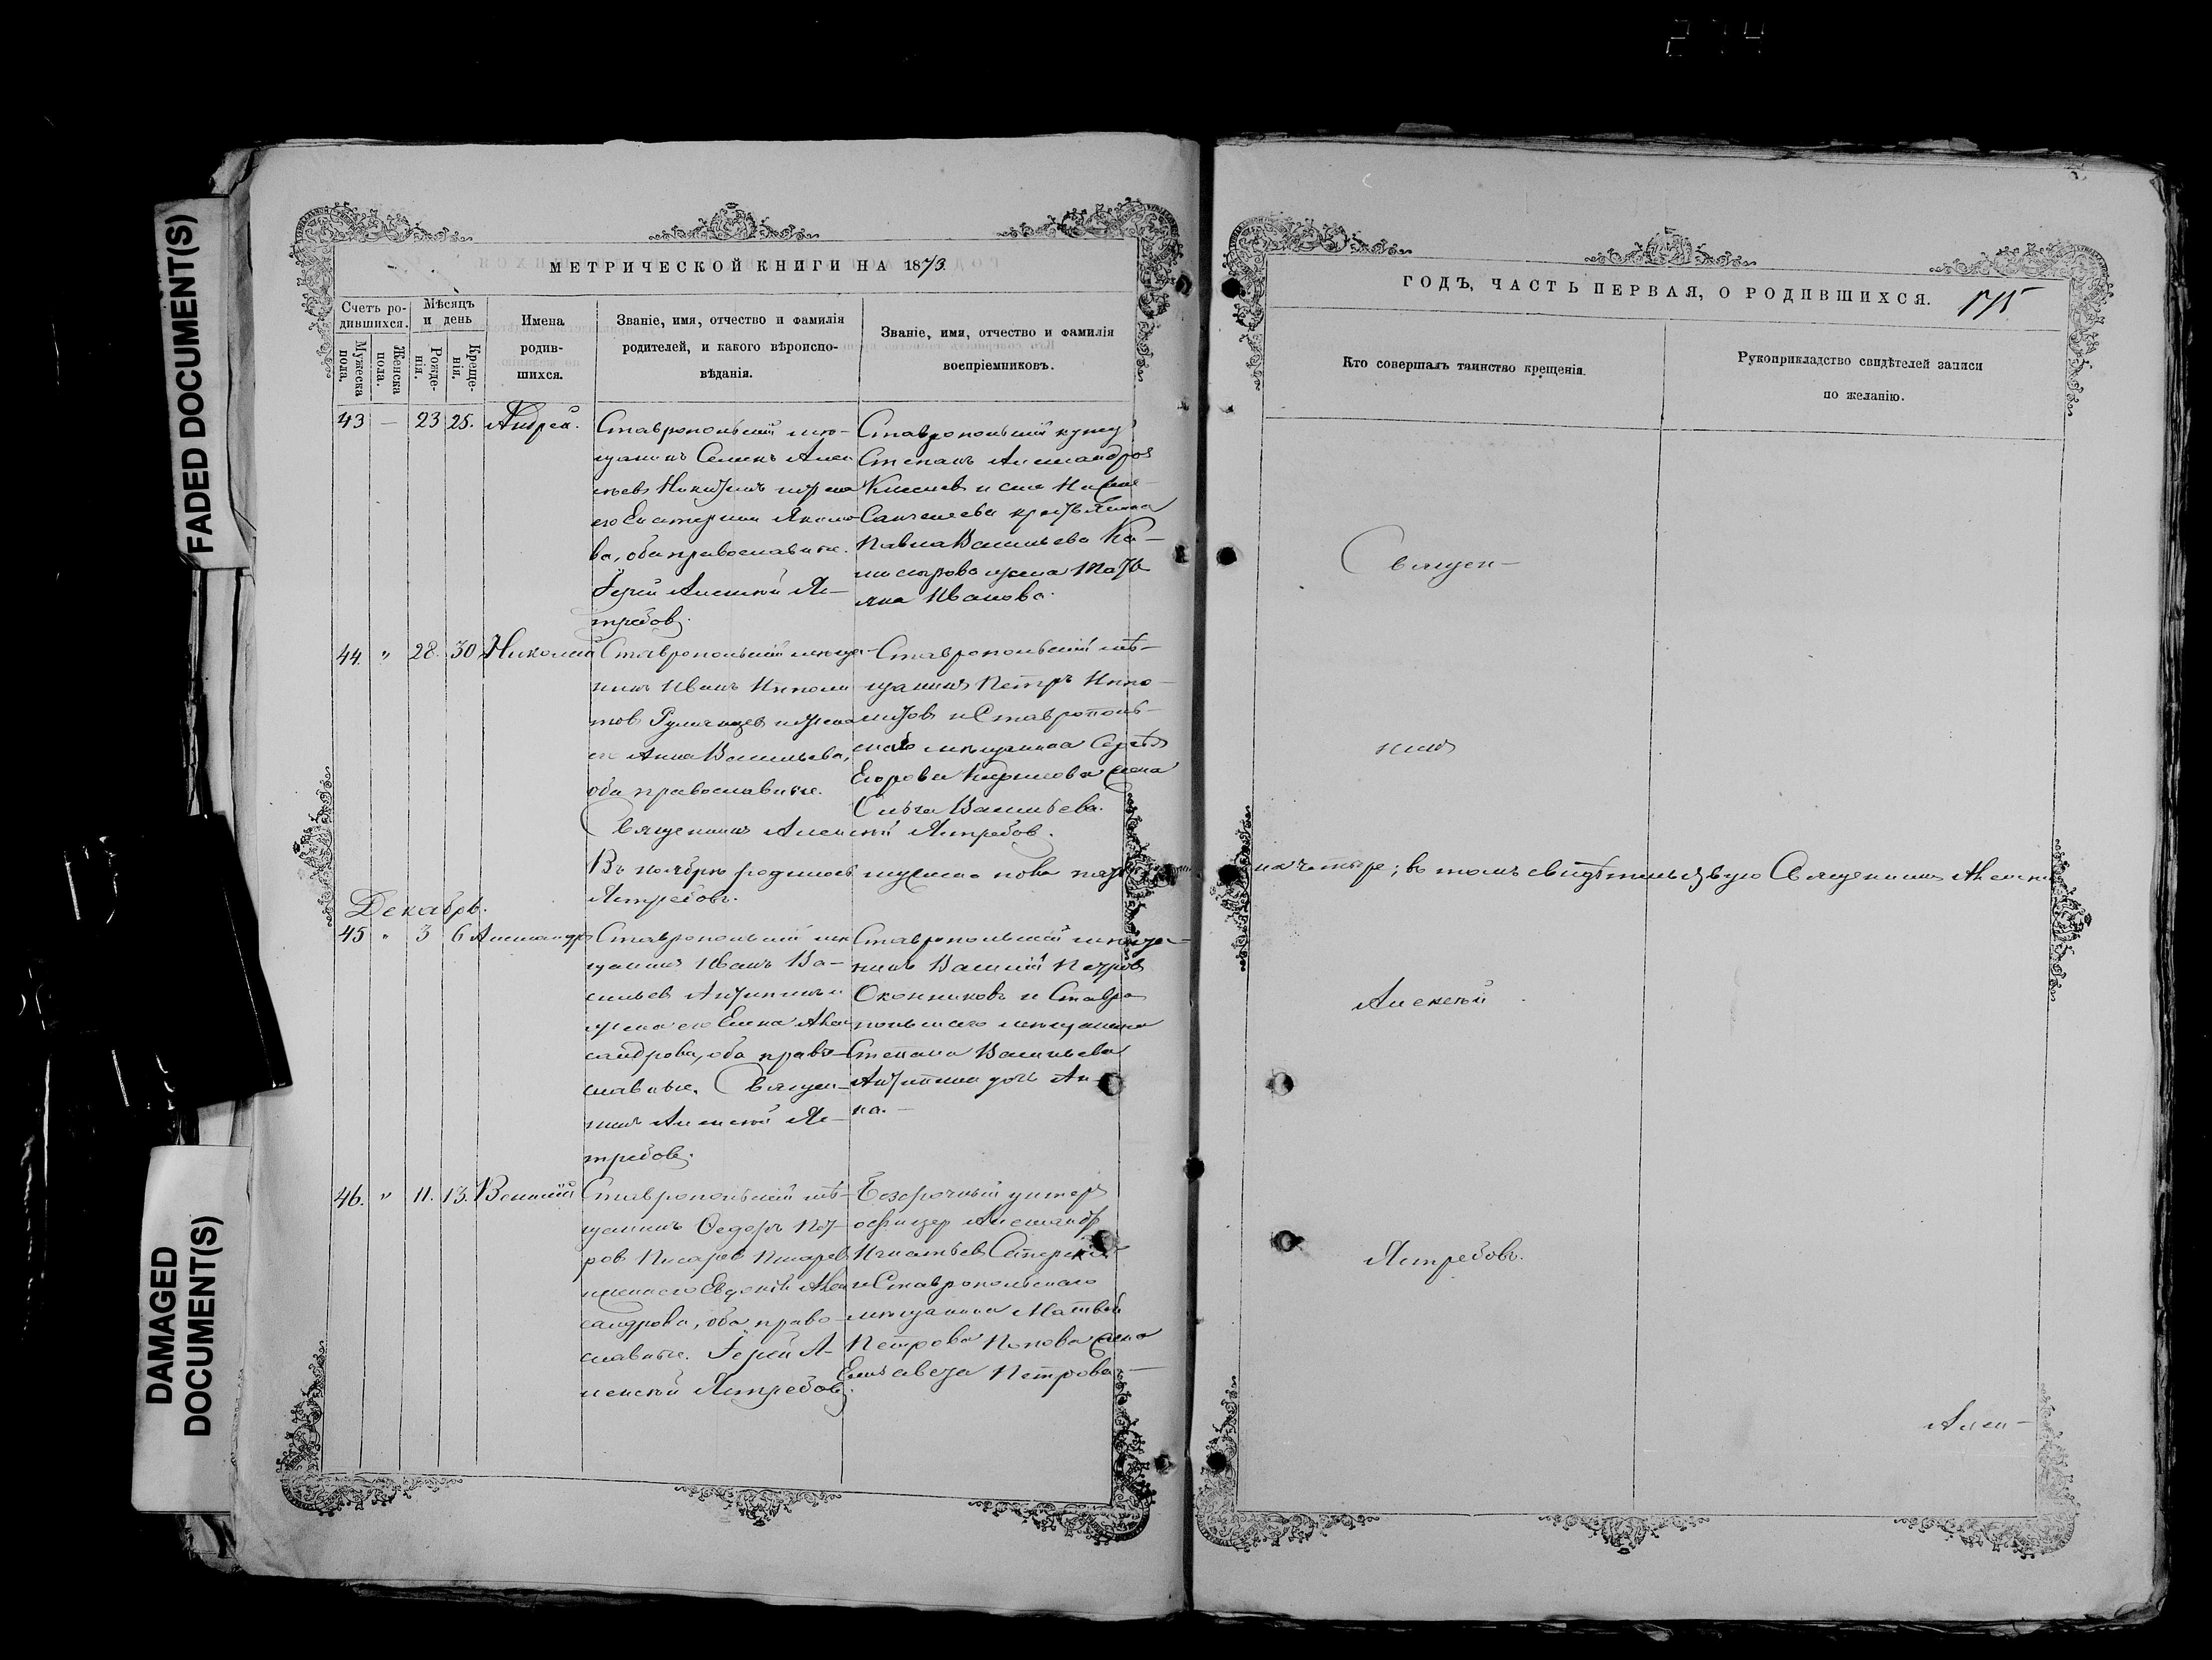 274
FADED DOCUMENT(S)
DAMAGED
DOCUMENT(S)
МЕТРИЧЕСКОЙ КНИГИ НА 1873.
Счетъ ро-
дившихся.
Мужеска
пола.
Женска
пола.
Мѣсяцъ
и день
Рожде-
нія.
Креще-
нія.
Имена
родив-
шихся.
Званіе, имя, отчество и фамилія
родителей, и какого вѣроиспо-
вѣданія.
Званіе, имя, отчество и фамилія
воспріемниковъ.
43 — 23 25. Андрей.
Ставропольскій мѣ-
щанинъ Семенъ Алек
сѣевъ и жена
его Екатерина Яковле
ва, оба православные.
Іерей Алексѣй Яс-
требовъ.
Ставропольскій купец
Степанъ Александров
Павла Васильева Ка-
жена Тать
яна Иванова.
44. " 28. 30 Николай
Ставропольскій мѣща-
нинъ Иванъ Ипполи
товъ Румянцевъ и жена
его Анна Васильева,
оба православные.
Священникъ Алексѣй Ястребовъ.
Ставропольскій мѣ-
щанинъ Петръ Иппо-
литовъ и Ставрополь-
скаго мѣщанина Сергѣя
Егорова жена
Васильева.
Въ ноябрѣ родилось мужеска пола
начетыре; въ томъ свидѣтельствую Священникъ Алексѣй
Ястребовъ.
Декабрь.
45 " 3 6 Александръ
Ставропольскій мѣ
щанинъ Иванъ Ва-
сильевъ Антипинъ и
жена его Елена Алек
сандрова, оба право-
славные. Священ-
никъ Алексѣй Яс-
требовъ.
Ставропольскій мѣща-
нинъ Василій Петровъ
Оконниковъ и Ставро
польскаго мѣщанина
Степана Васильева
Антипина дочь Ан-
на.—
46. " 11. 13. Василій
Ставропольскій мѣ-
щанинъ Ѳедоръ Пет-
ровъ Писаревъ
жена его Евдокія Алек
сандрова, оба право-
славные. Іерей А-
лексѣй Ястребовъ.
Безсрочный унтеръ
офицер Александръ
Игнатьевъ
и Ставропольскаго
мѣщанина Матвѣя
Петрова Попова жена
Елисавета Петрова—
ГОДЪ, ЧАСТЬ ПЕРВАЯ, О РОДИВШИХСЯ.
175
Кто совершалъ таинство крещенія.
Рукоприкладство свидѣтелей записи
по желанію.
Священ-
никъ
Алексѣй
Ястребовъ.
Алек-